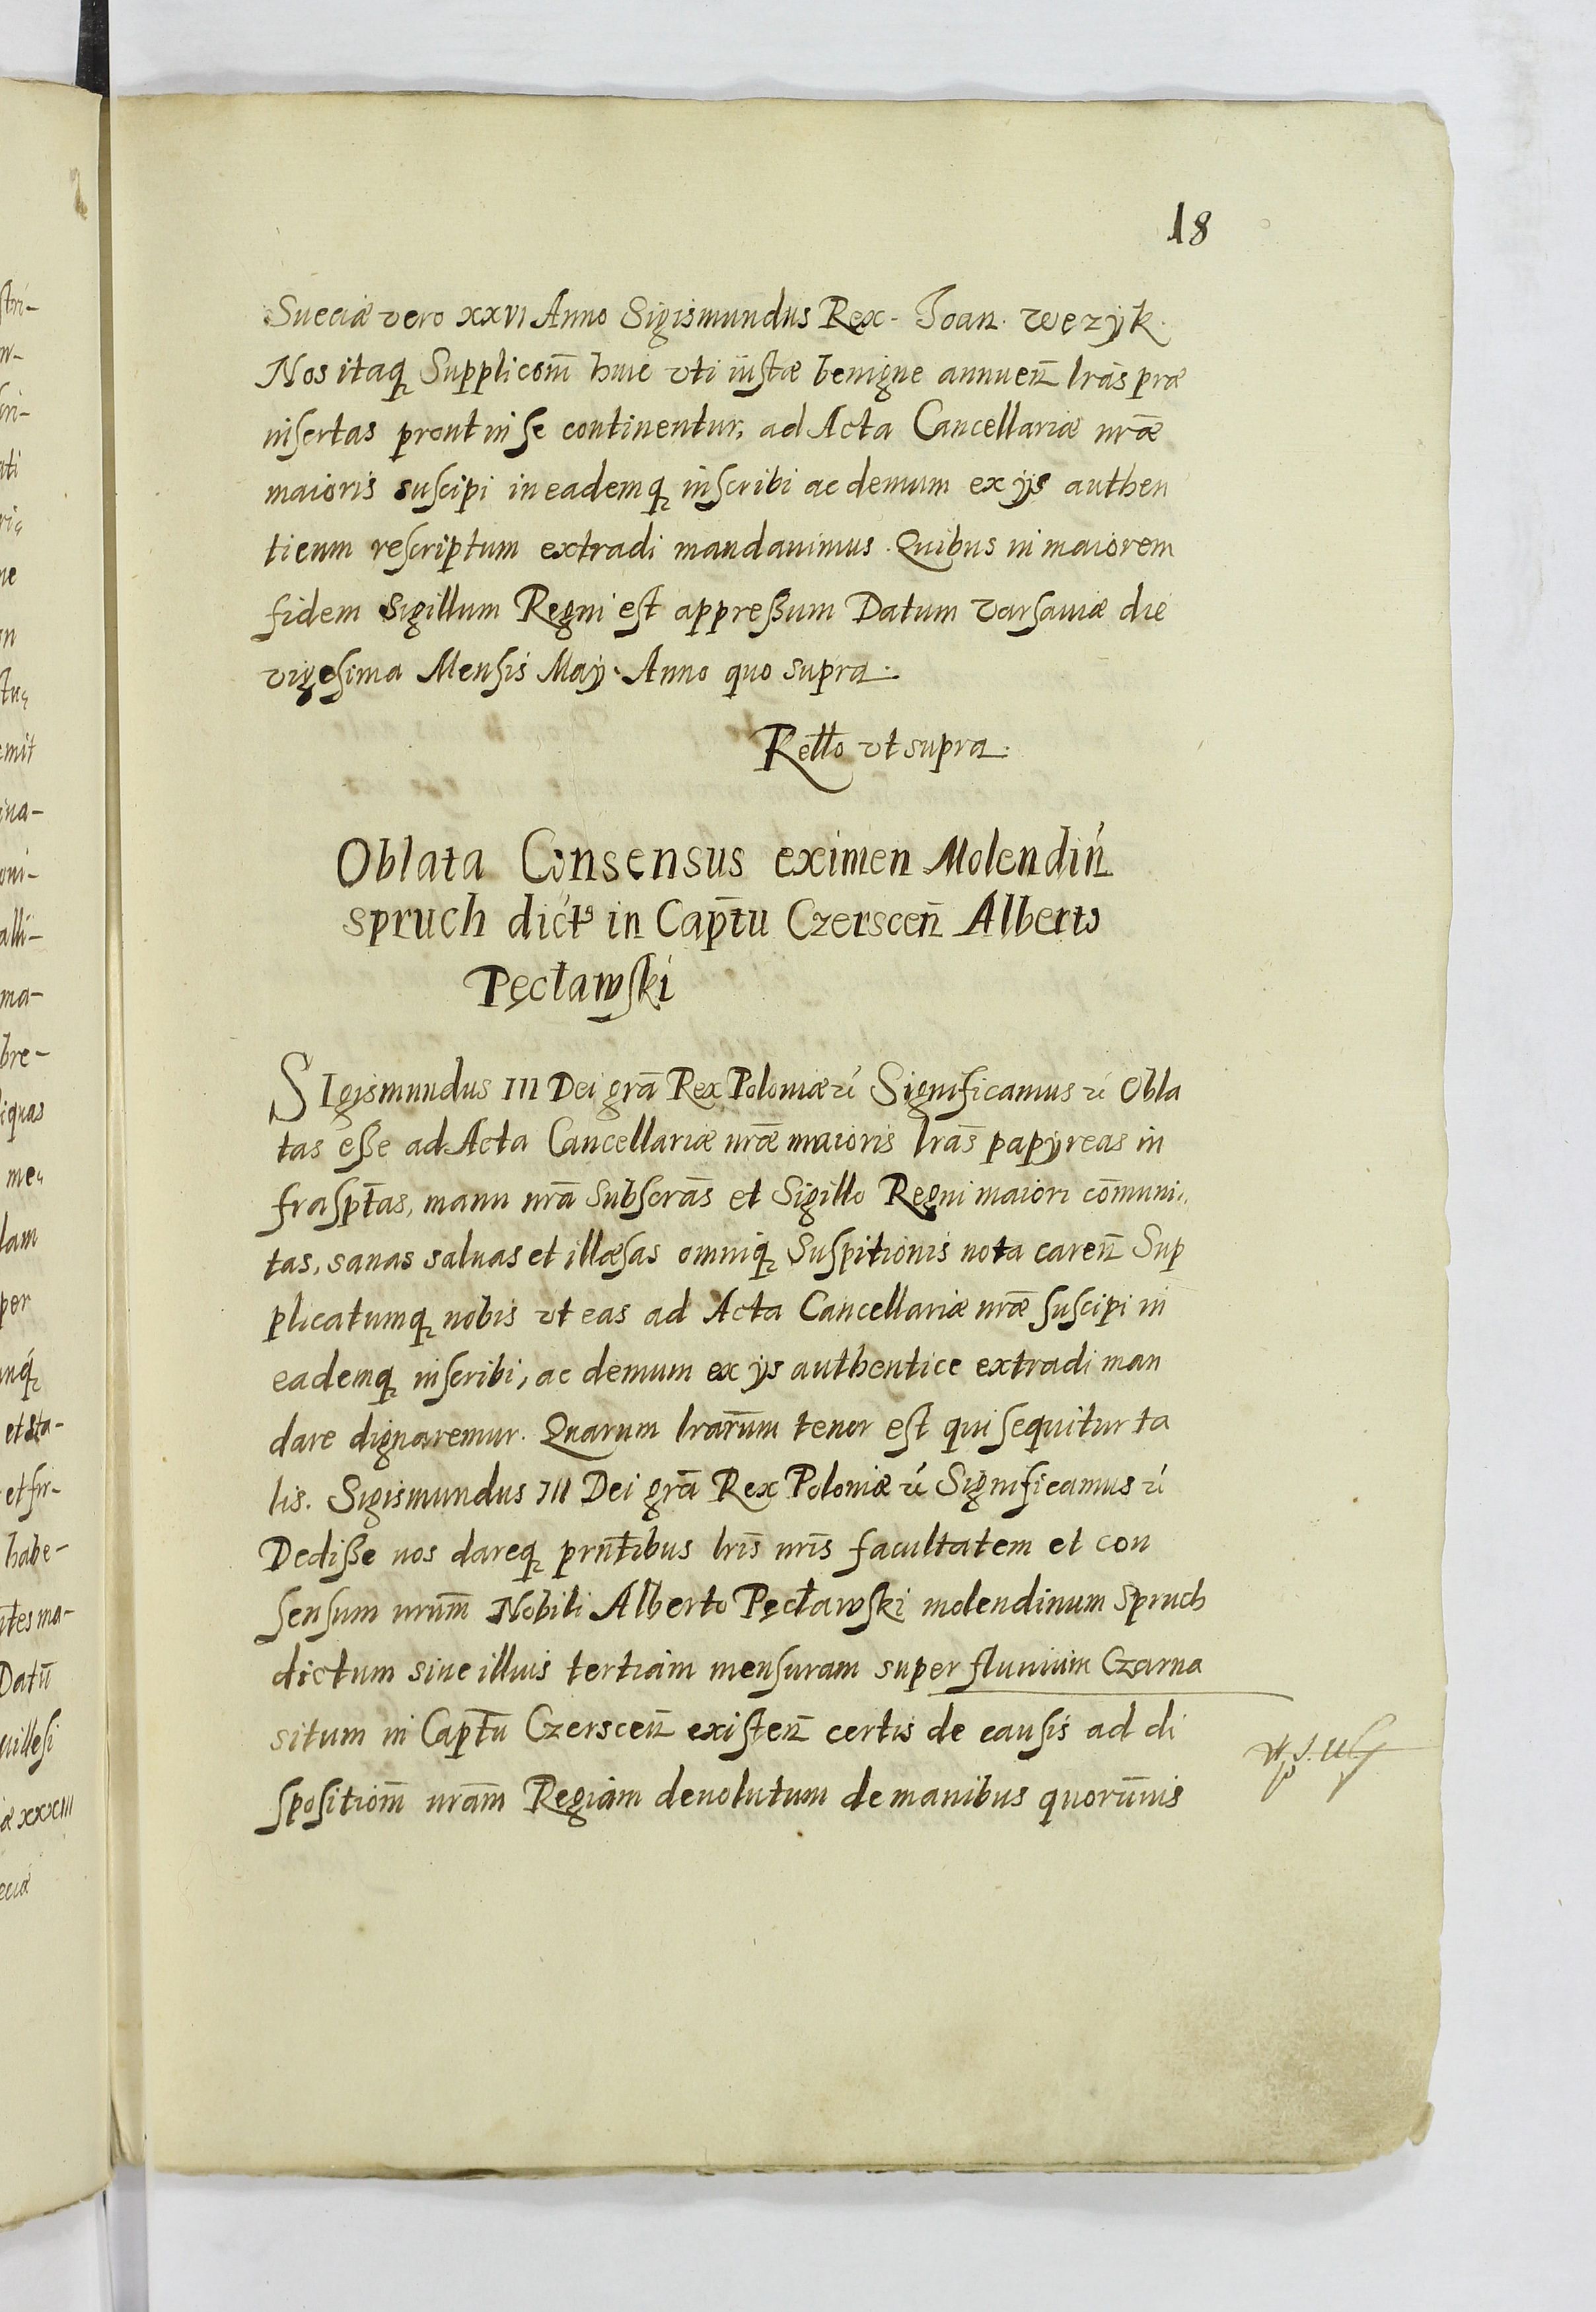 18
Sueciæ vero XXVI Anno Sigismundus Rex - Joan. Wezyk.
Nos itaq Supplicom̄ huic vti iustæ benigne annuen̄ lrās præ
insertas prout in se continentur, ad Acta Cancellariæ nrǣ
maioris suscipi in eademq inscribi ac demum ex ijs authen
ticum rescriptum extradi mandauimus. Quibus in maiorem
fidem Sigillum Regni est appressum Datum Varsauiæ die
vigesima Mensis Maij. Anno quo supra.
Reltō vt supra.
Oblata Consensus eximen Molendin
spruch dict in Captū Czerscen̄ Alberto
Pęcławski
SIgismundus III Dei grā Rex Poloniæ rć Significamus rć Obla
tas esse ad Acta Cancellariæ nrǣ maioris lrās papyreas in
frasptās, manu nrā subscrās et Sigillo Regni maiori cōmuni
tas, sanas saluas et illæsas omniq Suspitionis nota caren̄ Sup
plicatumq nobis vt eas ad Acta Cancellariæ nrǣ suscipi in
eademq inscribi, ac demum ex ijs authentice extradi man
dare dignaremur. Quarum lrarūm tenor est qui sequitur ta
lis. Sigismundus III Dei grā Rex Poloniæ rć Significamus rć
Dedisse nos dareq prntībus lrīs nrīs facultatem et con
sensum nrum̄ Nobili Alberto Pęcławski molendinum Spruch
dictum siue illius tertiam mensuram super fluuium Czarna
situm in Captū Czerscen̄ existen̄ certis de causis ad di
spositiom̄ nram̄ Regiam deuolutum de manibus quorumūis